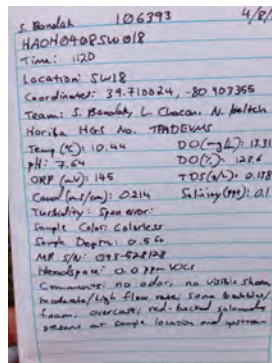 S. Bandak 106393 4/8/
HAOH0408SW018
Time: 1120
Location: SW18
Coordinates: 39.710024, -80.907355
Team: S. Bandak, L. Chacon, N. Keltch
Horiba HGS No. TPADEVMS
Temp (°C): 10.44 DO (mg/L): 13.31
pH: 7.64 DO (%): 122.6
ORP (mV): 145 TDS (g/L): 0.138
Cond (ms/cm): 0.214 Salinity (ppt): 0.1
Turbidity: Span error:
Sample Color: Colorless
Sample Depth: 0.5
MR S/N: 095-528128
Headspace: 0.0 ppm VOCs
Comments: no odor, no visible sheen
moderate/high flow rate, some bubbles/
foam, overcast, red-backed salamander
present at sample location and upstream